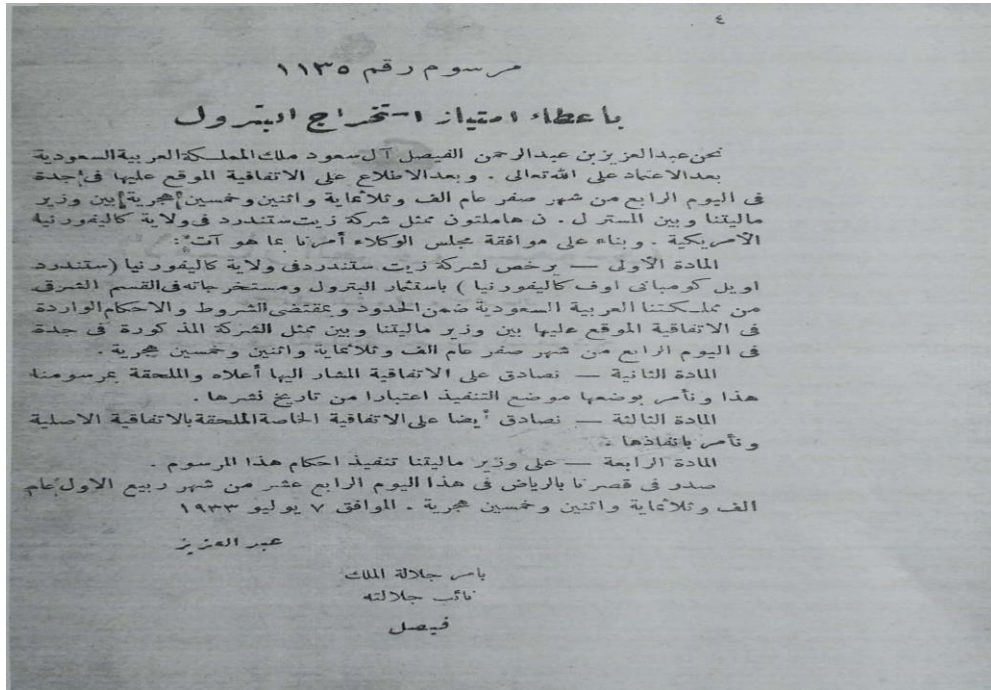 ٤
مرسوم رقم ١١٣٥
بأعطاء امتياز استخراج البترول
نحن عبدالعزيز بن عبدالرحمن الفيصل آل سعود ملك المملكة العربية السعودية
بعد الاعتماد على الله تعالى . وبعد الاطلاع على الاتفاقية الموقع عليها فى جدة
فى اليوم الرابع من شهر صفر عام الف وثلاثماية واثنين وخمسين هجرية بين وزير
ماليتنا وبين المستر ل . ن هاملتون ممثل شركة زيت ستندرد فى ولاية كاليفورنيا
الأمريكية . وبناء على موافقة مجلس الوكلاء أمرنا بما هو آت :
المادة الأولى — يرخص لشركة زيت ستندرد فى ولاية كاليفورنيا (ستندرد
اويل كومبانى اوف كاليفورنيا ) باستثمار البترول ومستخرجاته فى القسم الشرقى
من مملكتنا العربية السعودية ضمن الحدود وبمقتضى الشروط والاحكام الواردة
فى الاتفاقية الموقع عليها بين وزير ماليتنا وبين ممثل الشركة المذكورة فى جدة
فى اليوم الرابع من شهر صفر عام الف وثلاثماية واثنين وخمسين هجرية .
المادة الثانية — نصادق على الاتفاقية المشار اليها أعلاه والملحقة بمرسومنا
هذا ونأمر بوضعها موضع التنفيذ اعتبارا من تاريخ نشرها .
المادة الثالثة — نصادق أيضا على الاتفاقية الخاصة الملحقة بالاتفاقية الاصلية
ونأمر بانفاذها .
المادة الرابعة — على وزير ماليتنا تنفيذ احكام هذا المرسوم .
صدر فى قصرنا بالرياض فى هذا اليوم الرابع عشر من شهر ربيع الاول عام
الف وثلاثماية واثنين وخمسين هجرية . الموافق ٧ يوليو ١٩٣٣
عبد العزيز
بامر جلالة الملك
نائب جلالته
فيصل